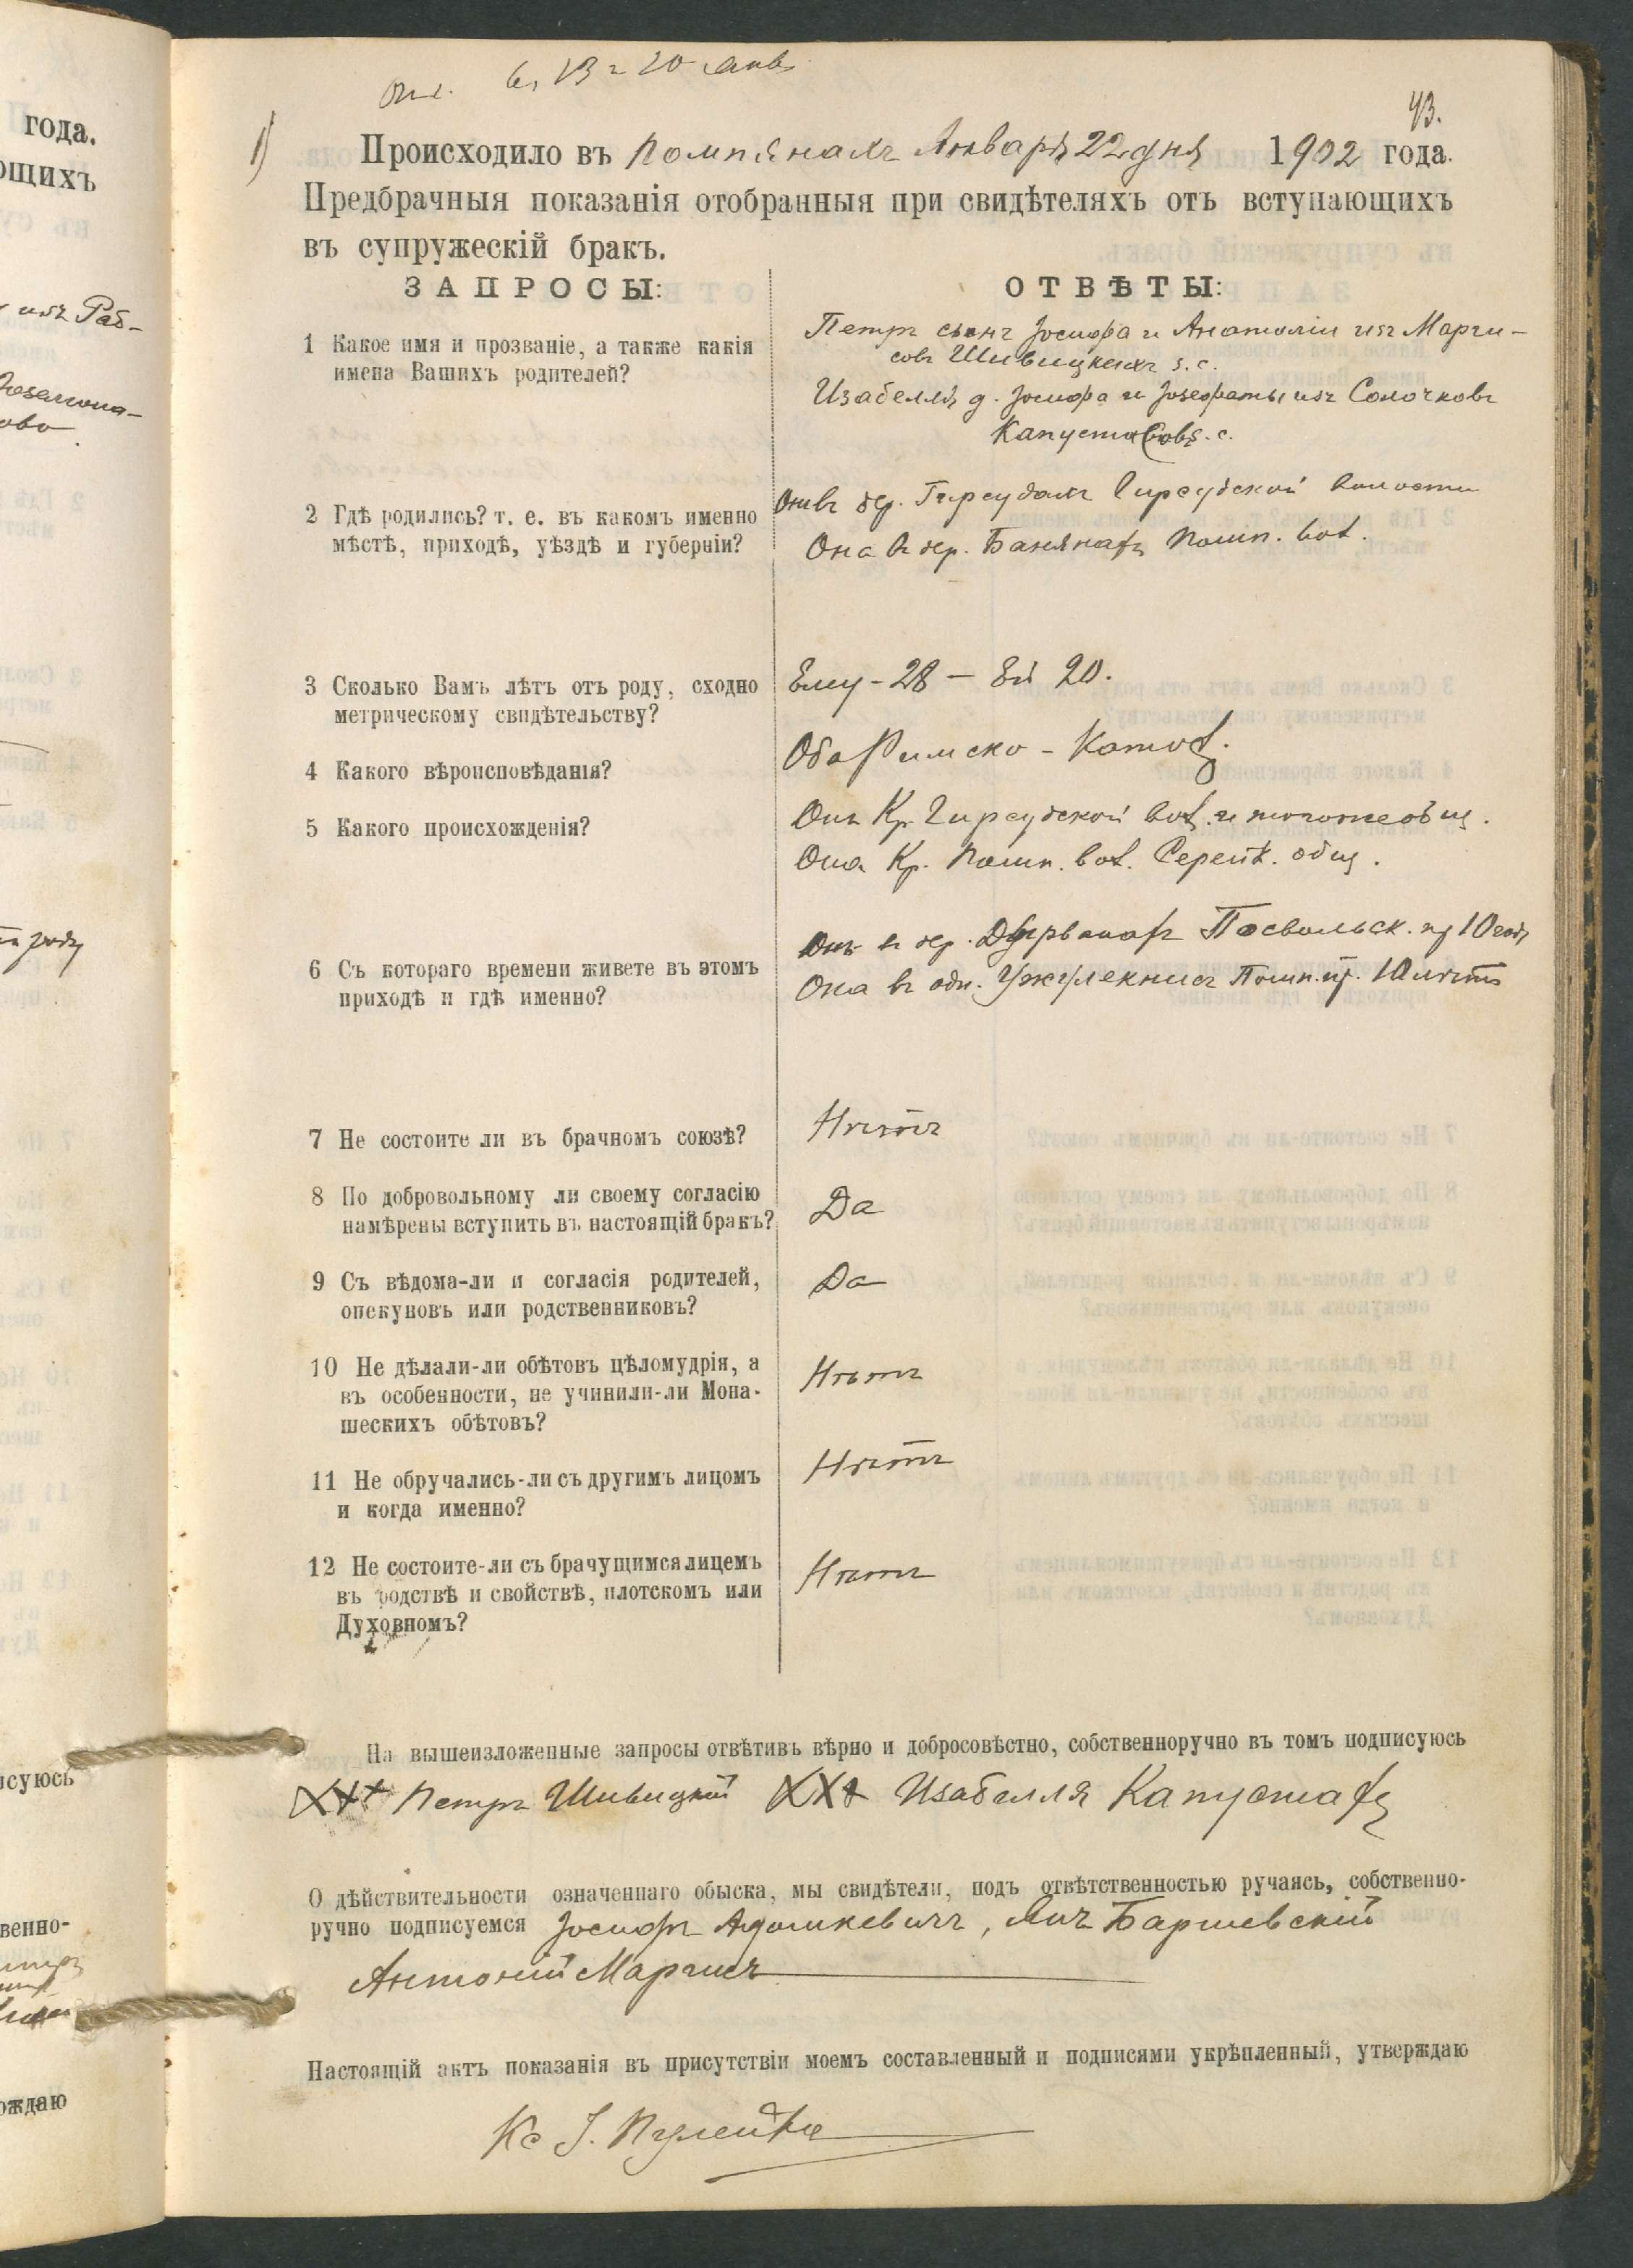 6, 13 и 20 янв
43.
1)
Происходило въ Помпянахъ Января 22 дня 1902 года.
Предбрачныя показанія отобранныя при свидѣтеляхъ отъ вступающихъ
въ супружескій бракъ.
ЗАПРОСЫ:
ОТВѢТЫ:
1 Какое имя и прозваніе, а также какія
имена Вашихъ родителей?
Петръ сынъ Іосифа и Анатоліи изъ Марги-
совъ Шивицкихъ з. с.
Изабелля д. Іосифа и Іозефаты изъ Солочковъ
Капустовъ з. с.
2 Гдѣ родились? т. е. въ какомъ именно
мѣстѣ, приходѣ, уѣздѣ и губерніи?
Онъ въ дер. Гирсудахъ Гирсудской волости
Она въ дер. Банянахъ Помп. вол.
3 Сколько Вамъ лѣтъ отъ роду, сходно
метрическому свидѣтельству?
Ему - 28 - Ей 20.
4 Какого вѣроисповѣданія?
Оба Римско - Катол.
5 Какого происхожденія?
Онъ Кр. Гирсудской вол. и тогоже общ.
Она Кр. Помп. вол. Серейк. общ.
6 Съ котораго времени живете въ этомъ
приходѣ и гдѣ именно?
Онъ въ дер. Дирванахъ Посвольск. пр 10 год
Она въ одн. Ужулекнисъ Помп. пр. 10 лѣтъ
7 Не состоите ли въ брачномъ союзѣ?
Нѣтъ
8 По добровольному ли своему согласію
намѣрены вступить въ настоящій бракъ?
Да
9 Съ вѣдома-ли и согласія родителей,
опекуновъ или родственниковъ?
Да
10 Не дѣлали-ли обѣтовъ цѣломудрія, а
въ особенности, не учинили-ли Мона-
шескихъ обѣтовъ?
Нѣтъ
11 Не обручались-ли съ другимъ лицомъ
и когда именно?
Нѣтъ
12 Не состоите-ли съ брачущимся лицемъ
въ родствѣ и свойствѣ, плотскомъ или
Духовномъ?
Нѣтъ
На вышеизложенные запросы отвѣтивъ вѣрно и добросовѣстно, собственноручно въ томъ подписуюсь
ХХ+ Петръ Шивицкій ХХ+ Изабелля Капуста
О дѣйствительности означеннаго обыска, мы свидѣтели, подъ отвѣтственностью ручаясь, собственно-
ручно подписуемся Іосифъ Адомкевичъ, Янъ Баршевскій
Антоній Маргисъ
Настоящій актъ показанія въ присутствіи моемъ составленный и подписями укрѣпленный, утверждаю
Кс І.